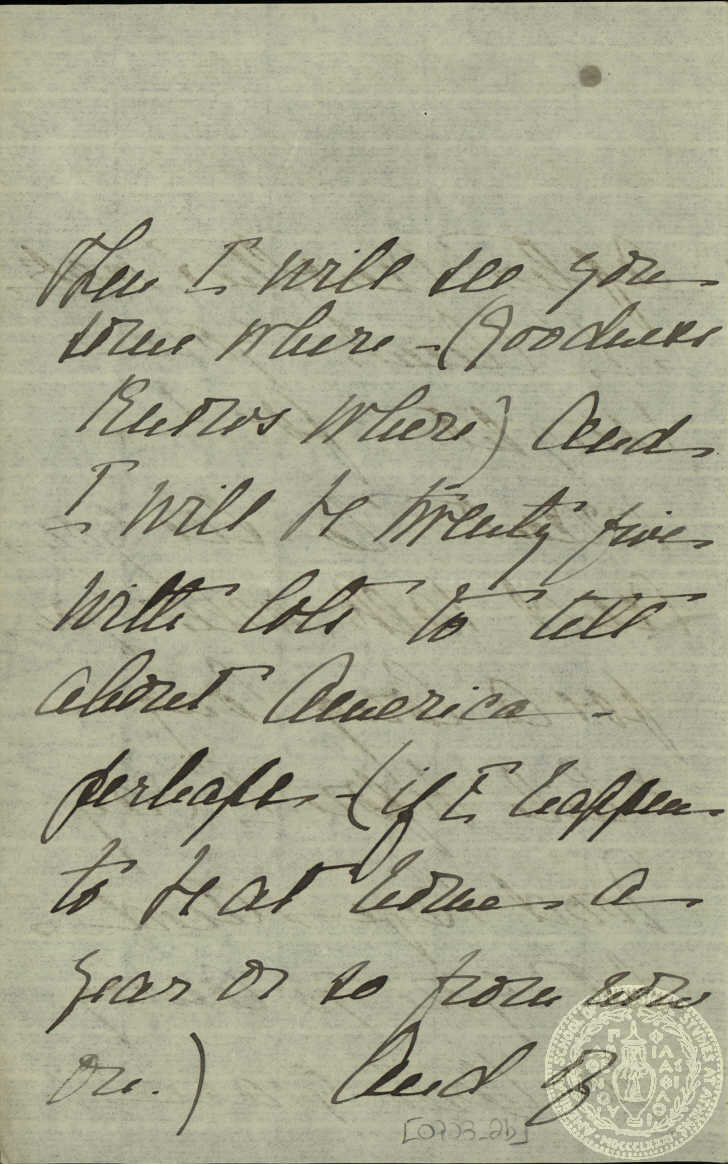 Then I will see you
some where - (goodness
knows where) And
I will be twenty five
with lots to tell
about America -
perhaps - (if I happen
to be at home a
year or so from now
on.) And
[0723_2b]